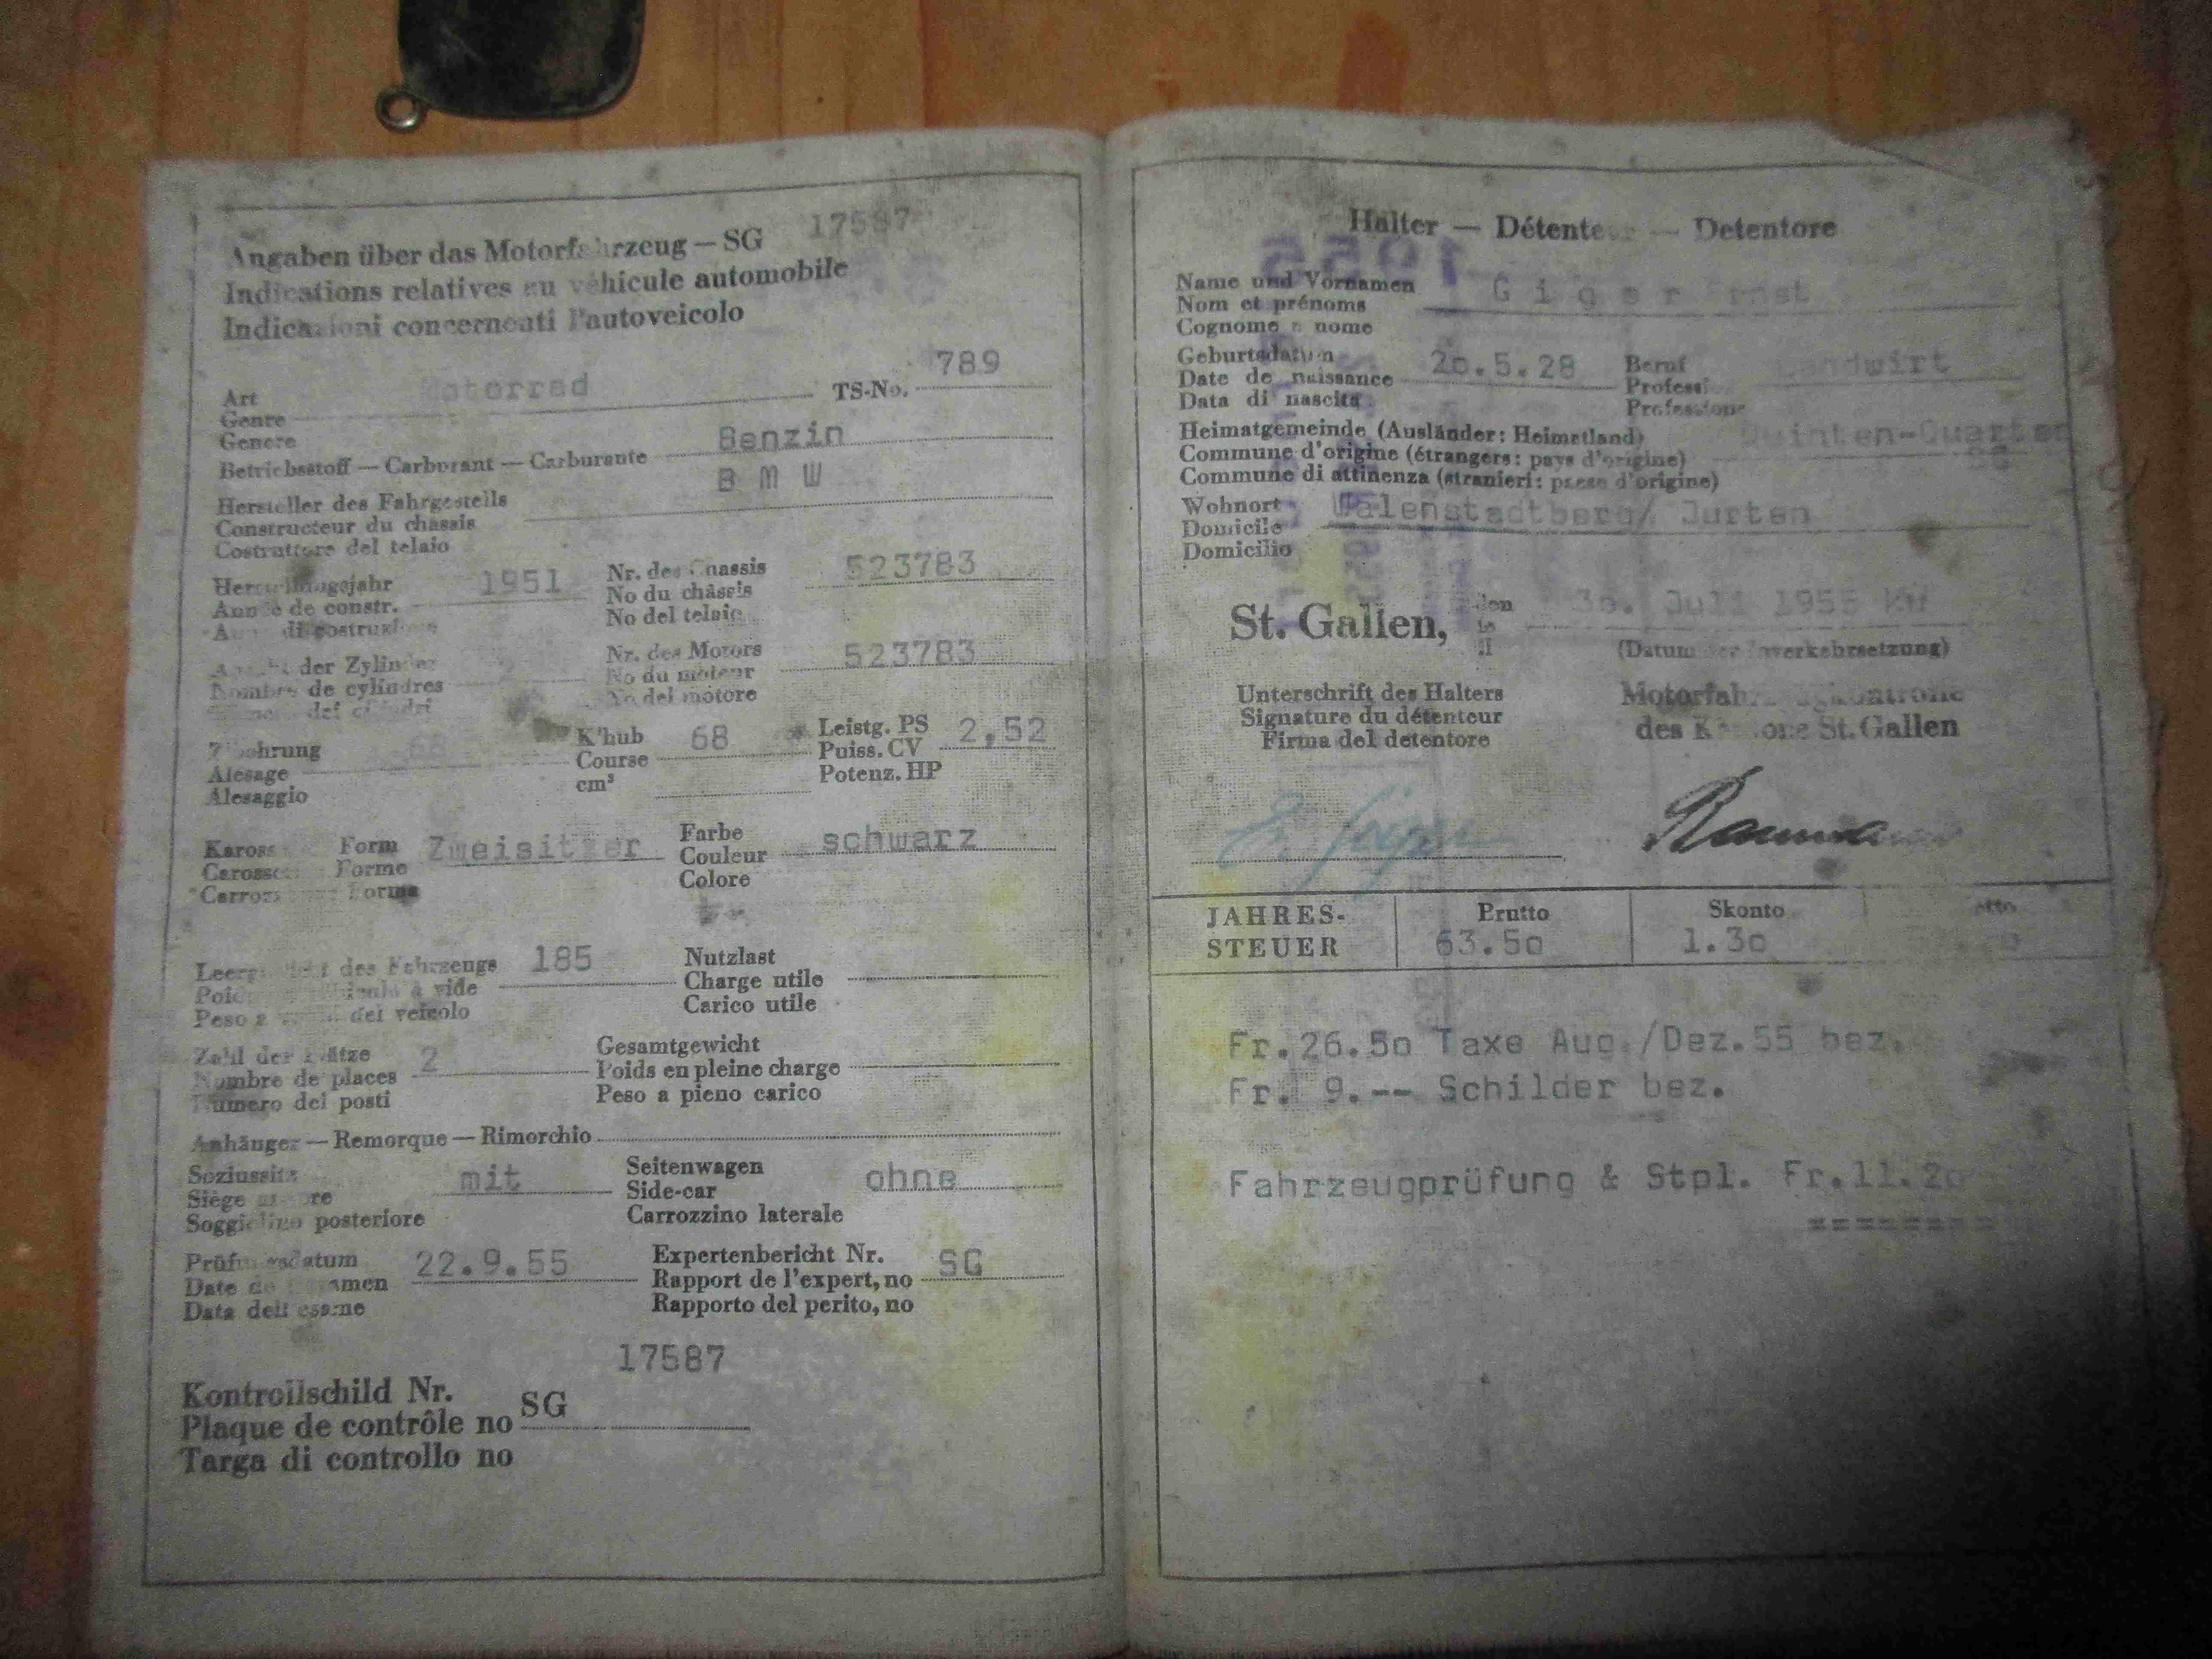 Angaben über das Motorfahrzeug — SG 17587
Indications relatives au véhicule automobile
Indicazioni concernenti l'autoveicolo
Art Motorrad TS-No. 789
Genre
Genere
Betriebsstoff — Carburant — Carburante Benzin
Hersteller des Fahrgestells BMW
Constructeur du châssis
Costruttore del telaio
Herstellungsjahr 1951 Nr. des Chassis 523783
Année de constr. No du châssis
Anno di costruzione No del telaio
Anzahl der Zylinder 2 Nr. des Motors 523783
Nombre de cylindres No du moteur
dei cilindri No del motore
Bohrung 68 K'hub 68 Leistg. PS 2,52
Alesage Course Puiss. CV
Alesaggio cm³ Potenz. HP
Form Zweisitzer Farbe schwarz
Forme Couleur
Forma Colore
Leergewicht des Fahrzeugs 185 Nutzlast
Poids à vide Charge utile
Peso a del veicolo Carico utile
Zahl der Plätze 2 Gesamtgewicht
Nombre de places Poids en pleine charge
Numero dei posti Peso a pieno carico
Anhänger — Remorque — Rimorchio
Soziussitz mit Seitenwagen ohne
Siège Side-car
Soggiolino posteriore Carrozzino laterale
Prüfungsdatum 22.9.55 Expertenbericht Nr. SG
Date de l'examen Rapport de l'expert, no
Data dell'esame Rapporto del perito, no
17587
Kontrollschild Nr.
Plaque de contrôle no SG
Targa di controllo no
Halter — Détenteur — Detentore
1955
Name und Vornamen Giger Ernst
Nom et prénoms
Cognome e nome
Geburtsdatum 20.5.28 Beruf Landwirt
Date de naissance Profession
Data di nascita Professione
Heimatgemeinde (Ausländer: Heimatland) Quinten-Quarten
Commune d'origine (étrangers: pays d'origine) SG
Commune di attinenza (stranieri: paese d'origine)
Wohnort Walenstadtberg/ Jurten
Domicile
Domicilio
St. Gallen, den 30. Juli 1955 KH
(Datum der Inverkehrsetzung)
Unterschrift des Halters Motorfahrzeugkontrolle
Signature du détenteur des Kantons St. Gallen
Firma del detentore
E. Giger
JAHRES- Brutto Skonto Netto
STEUER 63.50 1.30
Fr.26.50 Taxe Aug./Dez.55 bez.
Fr. 9.-- Schilder bez.
Fahrzeugprüfung & Stpl. Fr.11.20
========